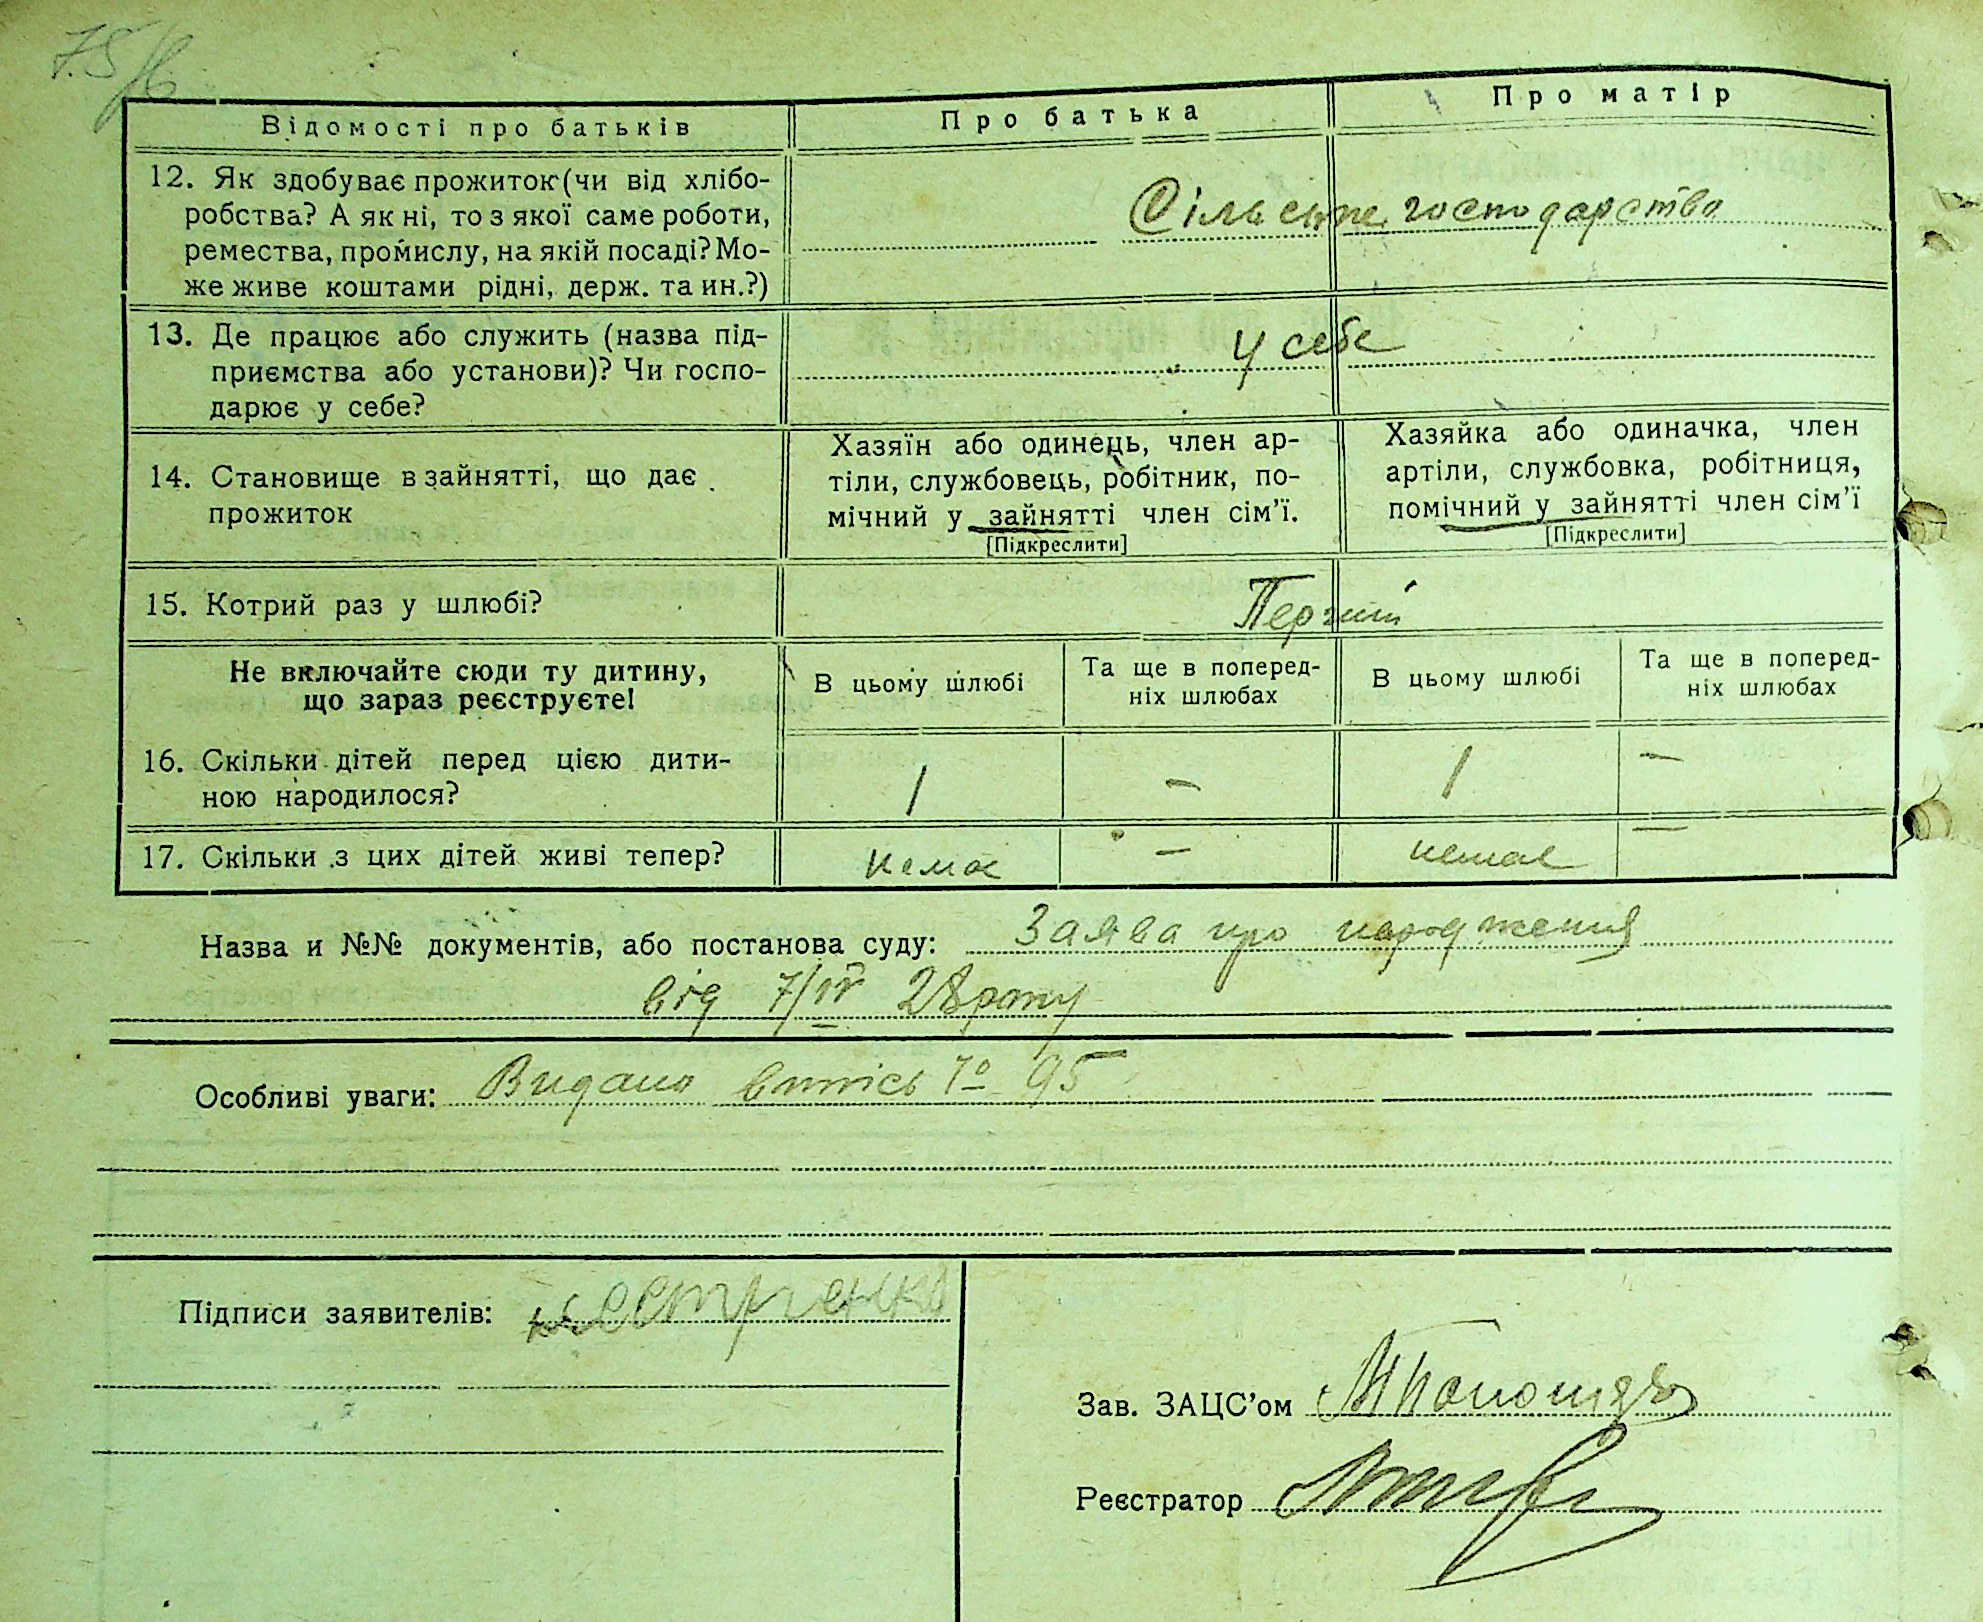 75
Відомості про батьків
Про батька
Про матір
12. Як здобуває прожиток (чи від хлібо-
робства? А як ні, то з якої саме роботи,
ремества, промислу, на якій посаді? Мо-
же живе коштами рідні, держ. та ин.?)
Сільське господарство
13. Де працює або служить (назва під-
приємства або установи)? Чи госпо-
дарює у себе?
у себе
14. Становище в зайнятті, що дає
прожиток
Хазяїн або одинець, член ар-
тіли, службовець, робітник, по-
мічний у зайнятті член сім'ї.
[Підкреслити]
Хазяйка або одиначка, член
артіли, службовка, робітниця,
помічний у зайнятті член сім'ї
[Підкреслити]
15. Котрий раз у шлюбі?
Перший
Не включайте сюди ту дитину,
що зараз реєструєте!
В цьому шлюбі
Та ще в поперед-
ніх шлюбах
В цьому шлюбі
Та ще в поперед-
ніх шлюбах
16. Скільки дітей перед цією дити-
ною народилося?
1 – 1 –
17. Скільки з цих дітей живі тепер?
немає – немає –
Назва и №№ документів, або постанова суду: Заява про народження
від 7/IV 28 року
Особливі уваги: Видано витпись № 95
Підписи заявителів:
Зав. ЗАЦС'ом
Реєстратор